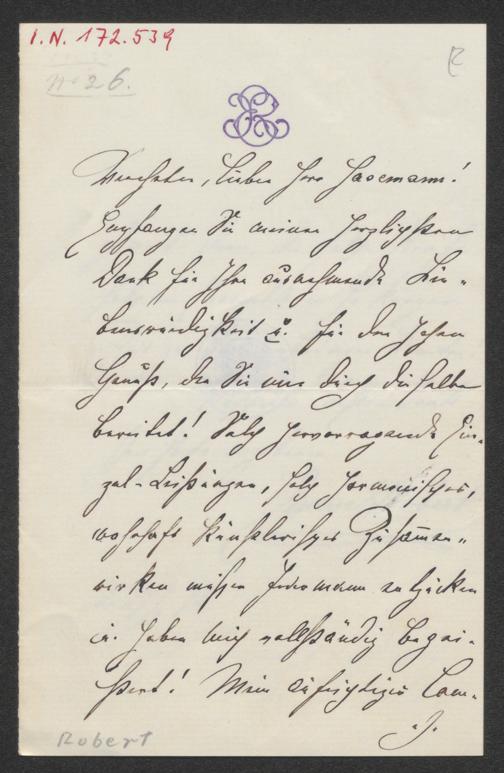 I.N. 172.539
No 26.
Verehrter, lieber Herr Hasemann!
Empfangen Sie meinen herzlichsten
Dank für Ihre ausnehmende Lie-
benswürdigkeit u. für den hohen
Genuß, den Sie uns durch dieselbe
bereitet! Solch hervorragende Ein-
zel-Leistungen, solch harmonisches,
wahrhaft künstlerisches Zusammen-
wirken müssen Jedermann entzücken
u. haben mich vollständig begei-
stert! Mein aufrichtiges Com-
Robert